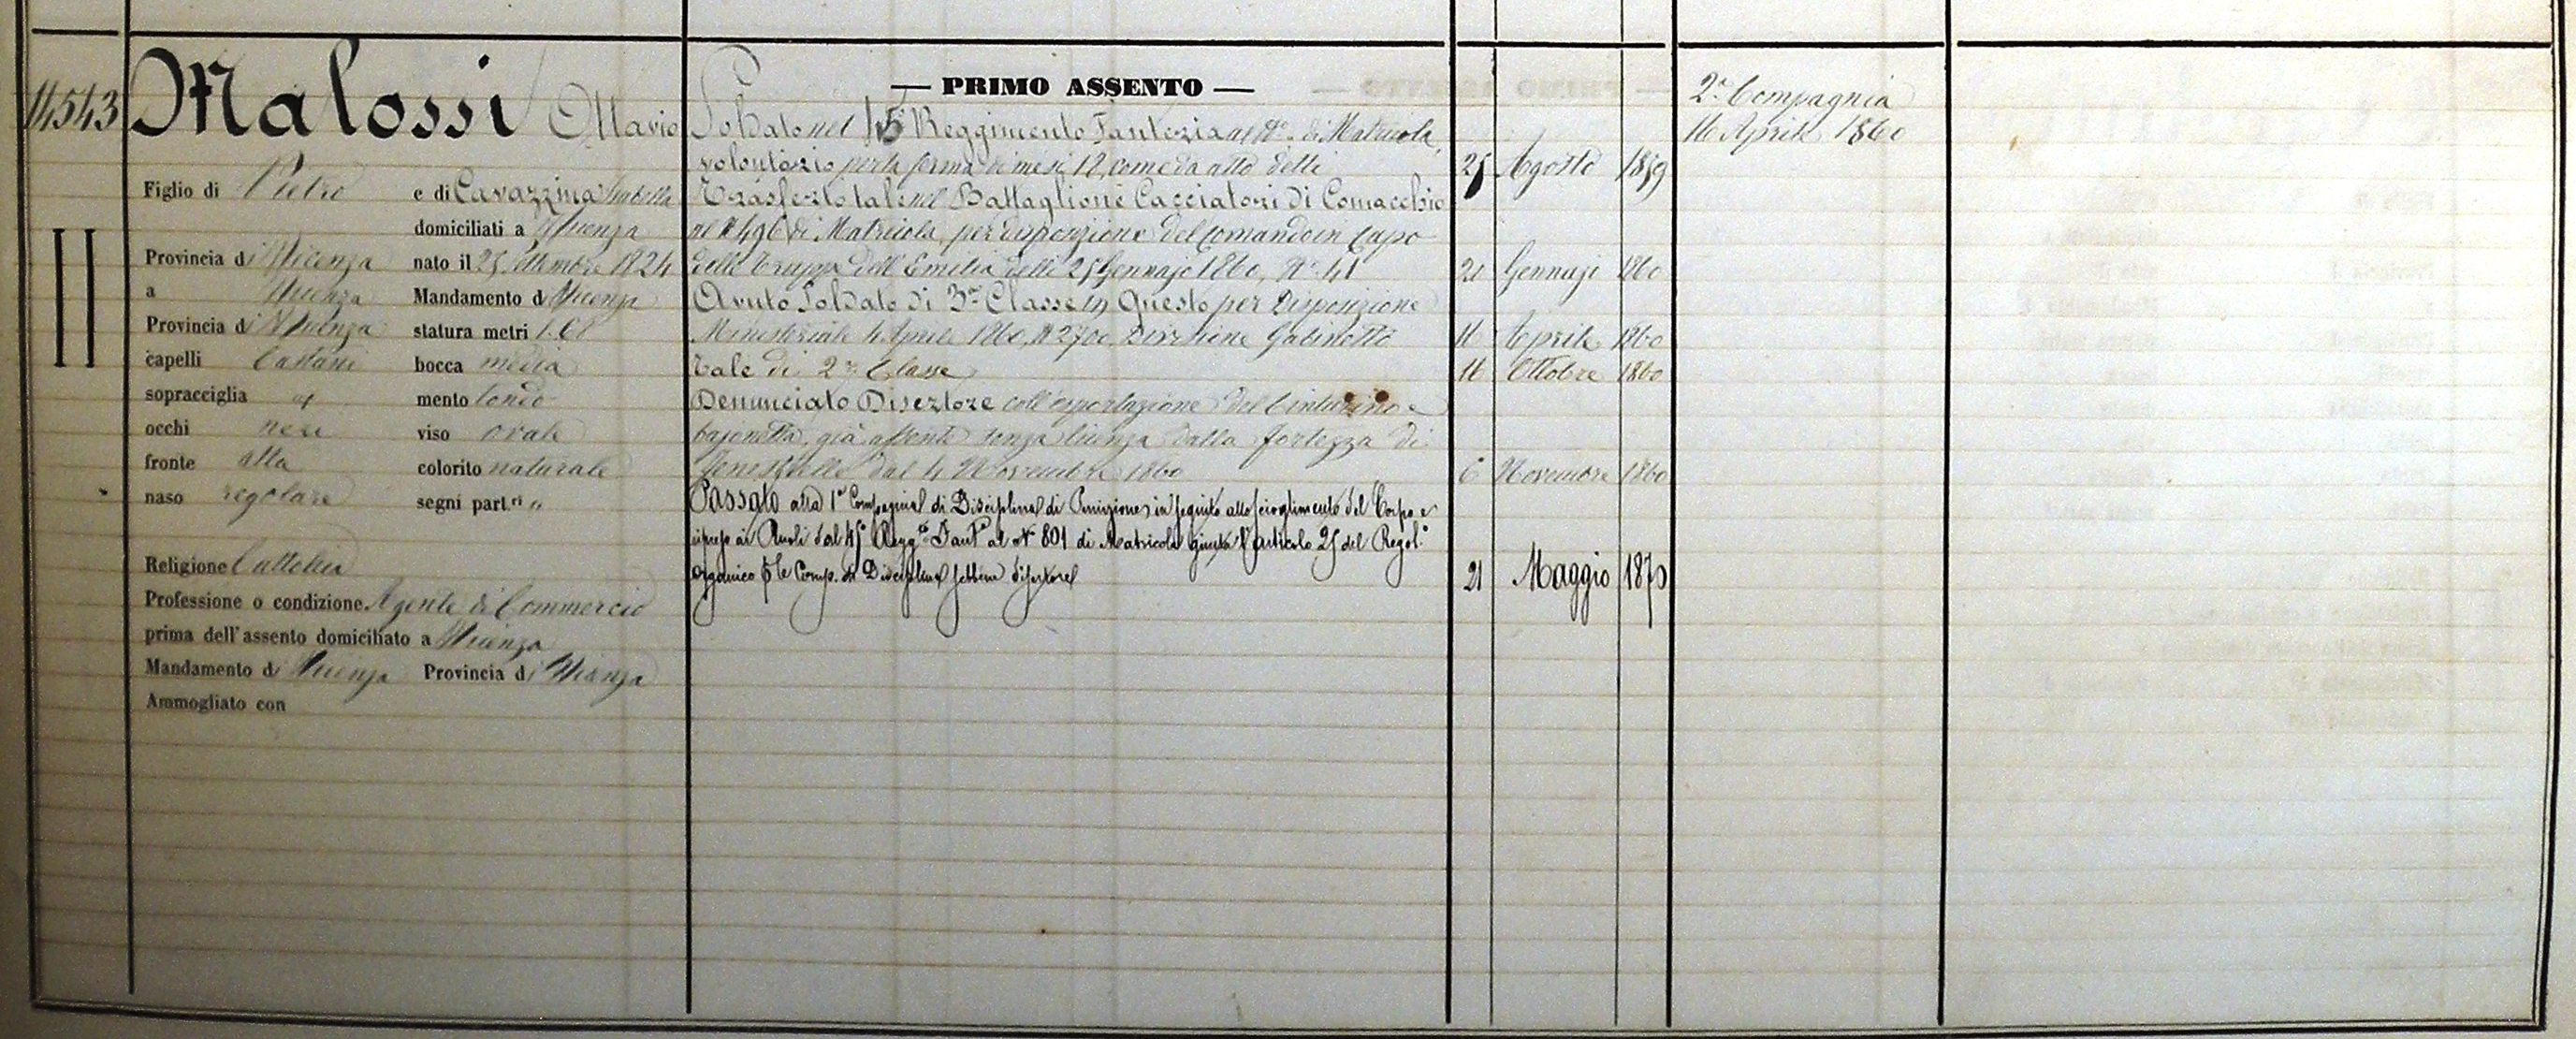 14543
Malossi Ottavio
Figlio di Pietro e di Cavazzina Isabella
domiciliati a Vicenza
Provincia di Vicenza nato il 25 Settembre 1824
a Vicenza Mandamento di Vicenza
Provincia di Vicenza statura metri 1.68
capelli Castani bocca media
sopracciglia mento tondo
occhi neri viso ovale
fronte alta colorito naturale
naso regolare segni part.ri "
Religione Cattolica
Professione o condizione Agente di Commercio
prima dell'assento domiciliato a Vicenza
Mandamento di Vicenza Provincia di Vicenza
Ammogliato con
— PRIMO ASSENTO —
Soldato nel 45 Reggimento Fanteria al N.° di Matricola,
volontario per la ferma di mesi 18, come da atto delli 25 Agosto 1859
Trasferto tale nel Battaglione Cacciatori di Comacchio
al N 496 di Matricola, per disposizione del Comando in Capo
delle Truppe dell'Emilia delli 25 Gennajo 1860, N.° 41 Gennajo 1860
Avuto Soldato di 3.a Classe in Questo per Disposizione
Ministeriale 4 Aprile 1860, N 2700 Divisione Gabinetto 16 Aprile 1860
Tale di 2.a Classe 16 Ottobre 1860
Denunciato Disertore coll'esportazione del Cinturino e
bajonetta, già assente senza licenza dalla fortezza di
Fenestrelle dal 4 Novembre 1860 6 Novembre 1860
Passato alla 1a Compagnia di Disciplina di Punizione in seguito allo scioglimento del Corpo e
ripreso ai Ruoli dal 45 Regg.to Fant.a al N 801 di Matricola giusta l'articolo 25 del Regol.o
organico p le Comp. di Disciplina sebbene disertore 21 Maggio 1870
2.a Compagnia
16 Aprile 1860